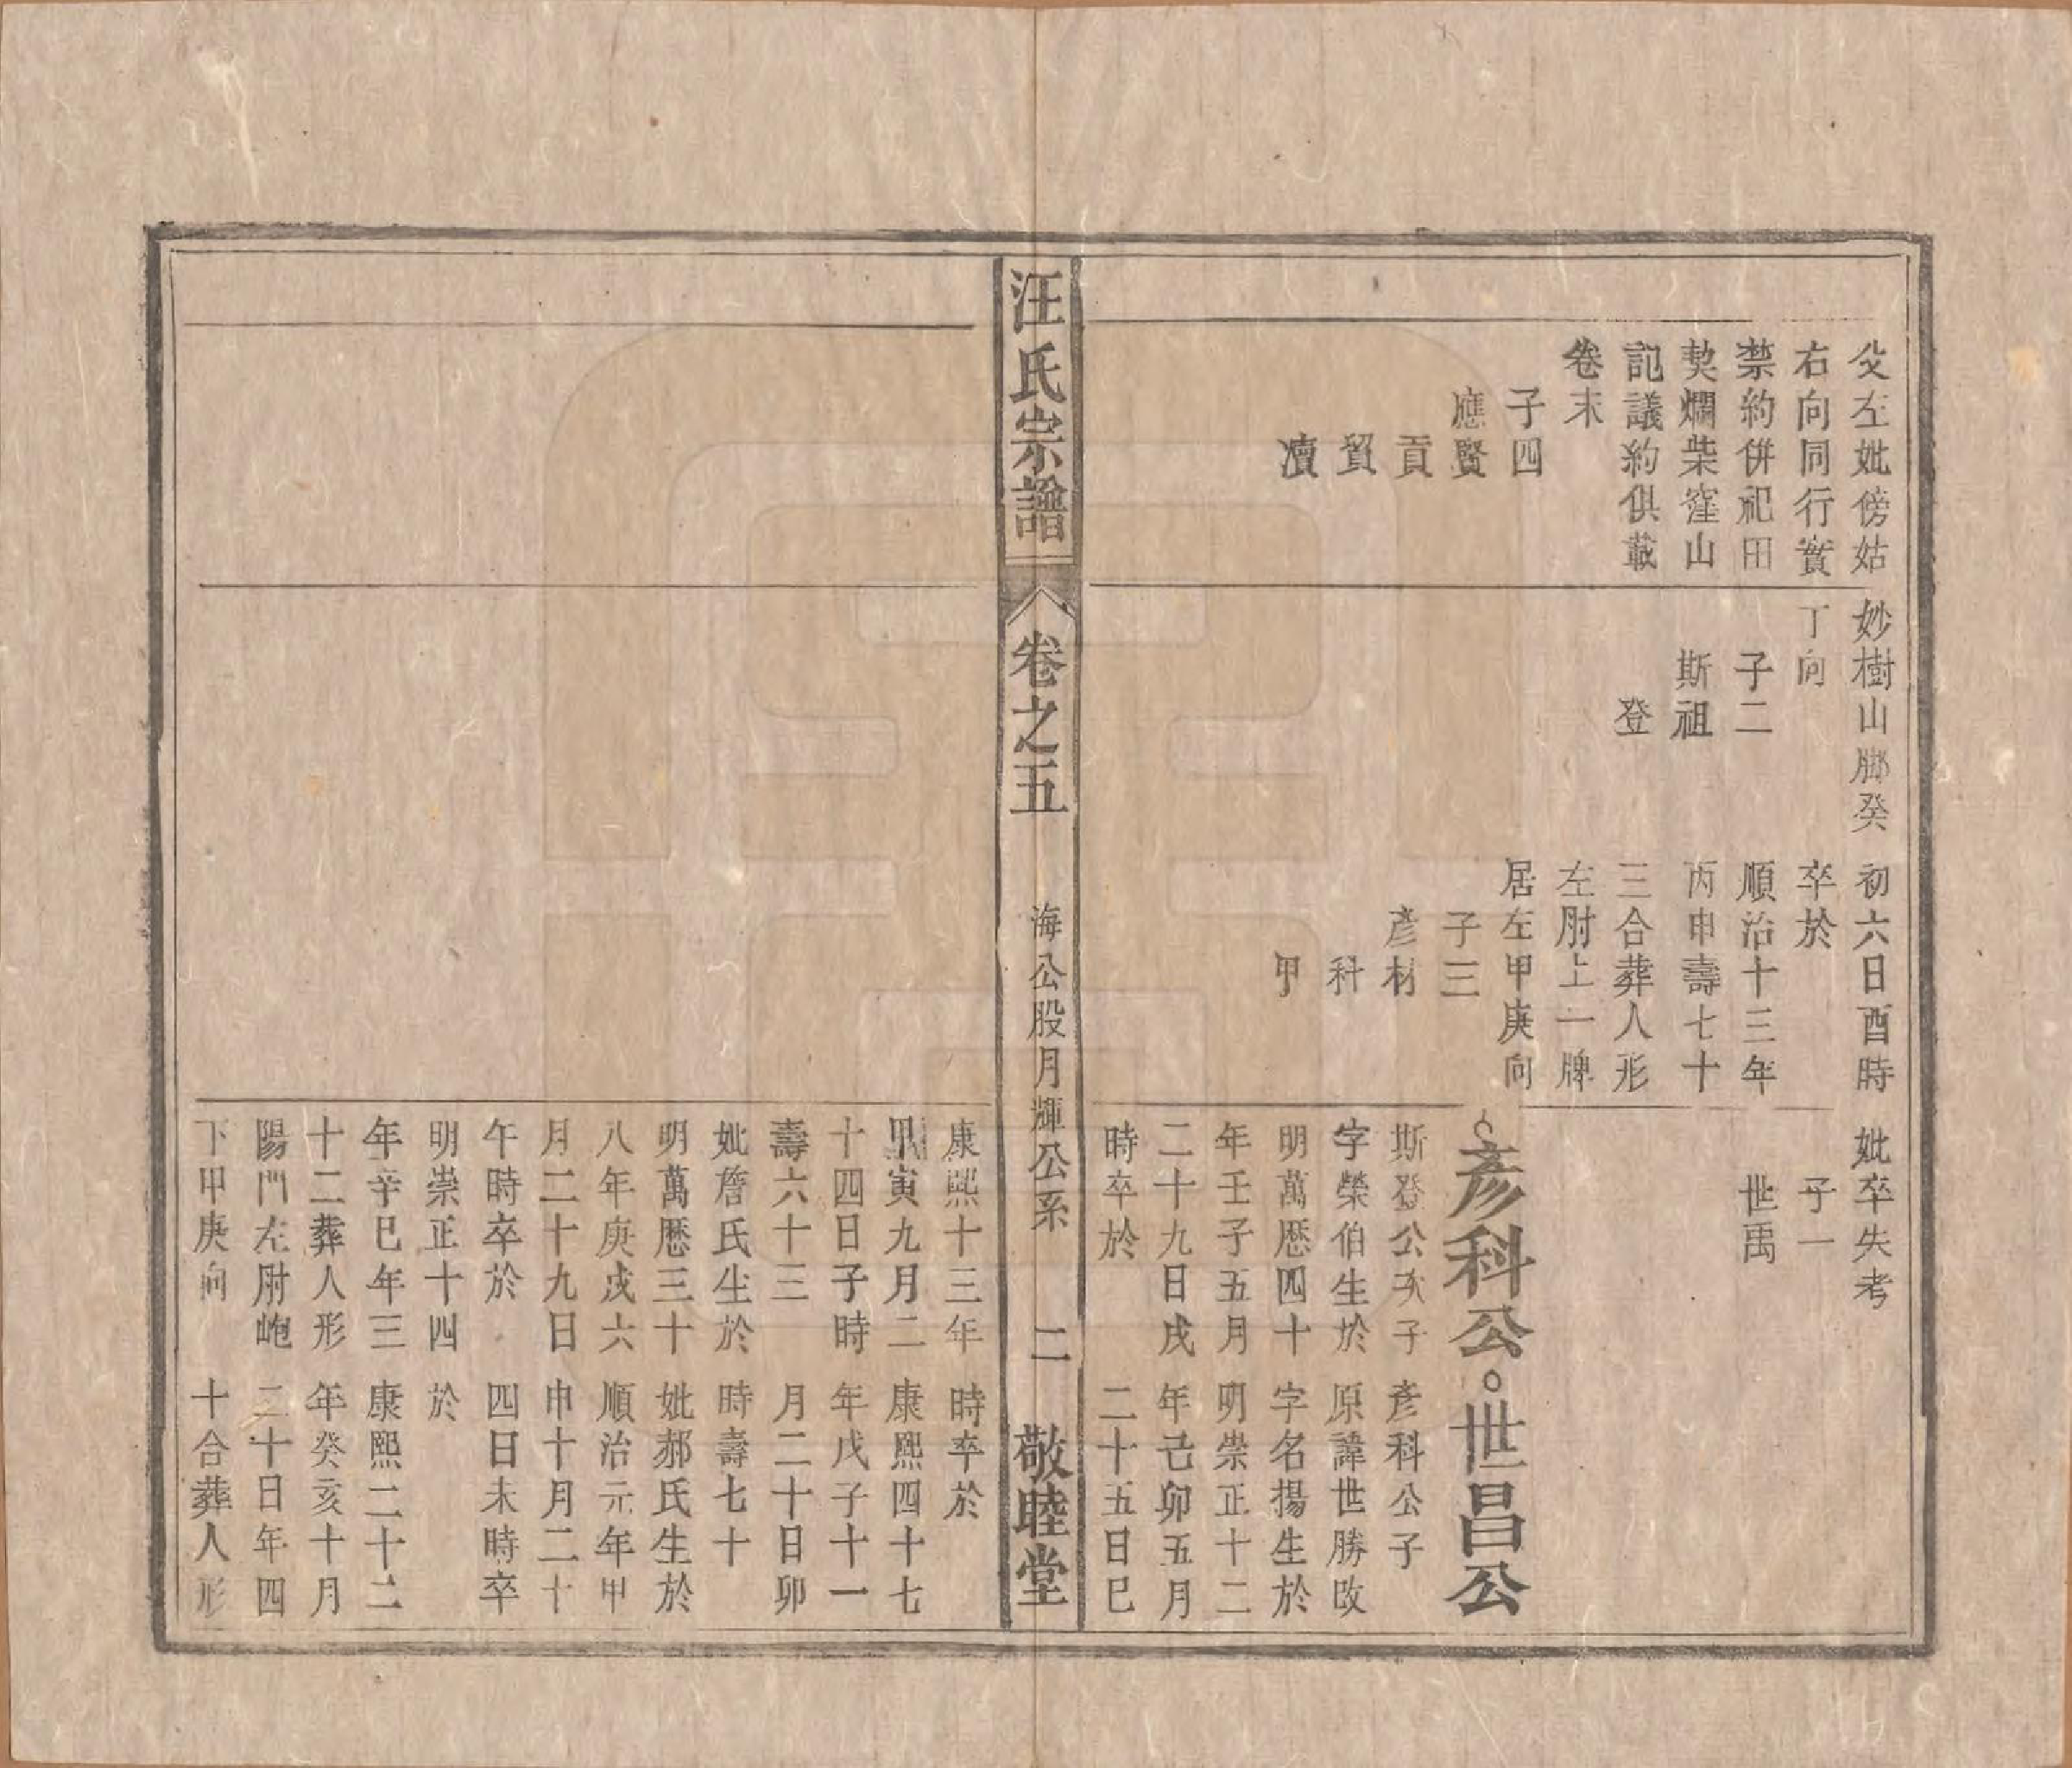 父左妣傍姑
右向同行實
禁約併祀田
契爛柴窪山
記議約俱載
卷末
子四
應賢
貢
貿
瀆
妙樹山腳癸
丁向
子二
斯祖
登
初六日酉時
卒於
順治十三年
丙申壽七十
三合葬人形
左肘上一牌
居左甲庚向
子三
彥材
科
甲
妣卒失考
子一
世禹
彥科公
斯登公次子
字榮伯生於
明萬曆四十
年壬子五月
二十九日戌
時卒於
世昌公
彥科公子
原諱世勝改
字名揚生於
明崇正十二
年己卯五月
二十五日巳
汪氏宗譜
卷之五
海公股月輝公系
二
敬睦堂
康熙十三年
甲寅九月二
十四日子時
壽六十三
妣詹氏生於
明萬曆三十
八年庚戌六
月二十九日
午時卒於
明崇正十四
年辛巳年三
十二葬人形
陽門左肘皰
下甲庚向
時卒於
康熙四十七
年戊子十一
月二十日卯
時壽七十
妣郝氏生於
順治元年甲
申十月二十
四日未時卒
於
康熙二十二
年癸亥十月
二十日年四
十合葬人形